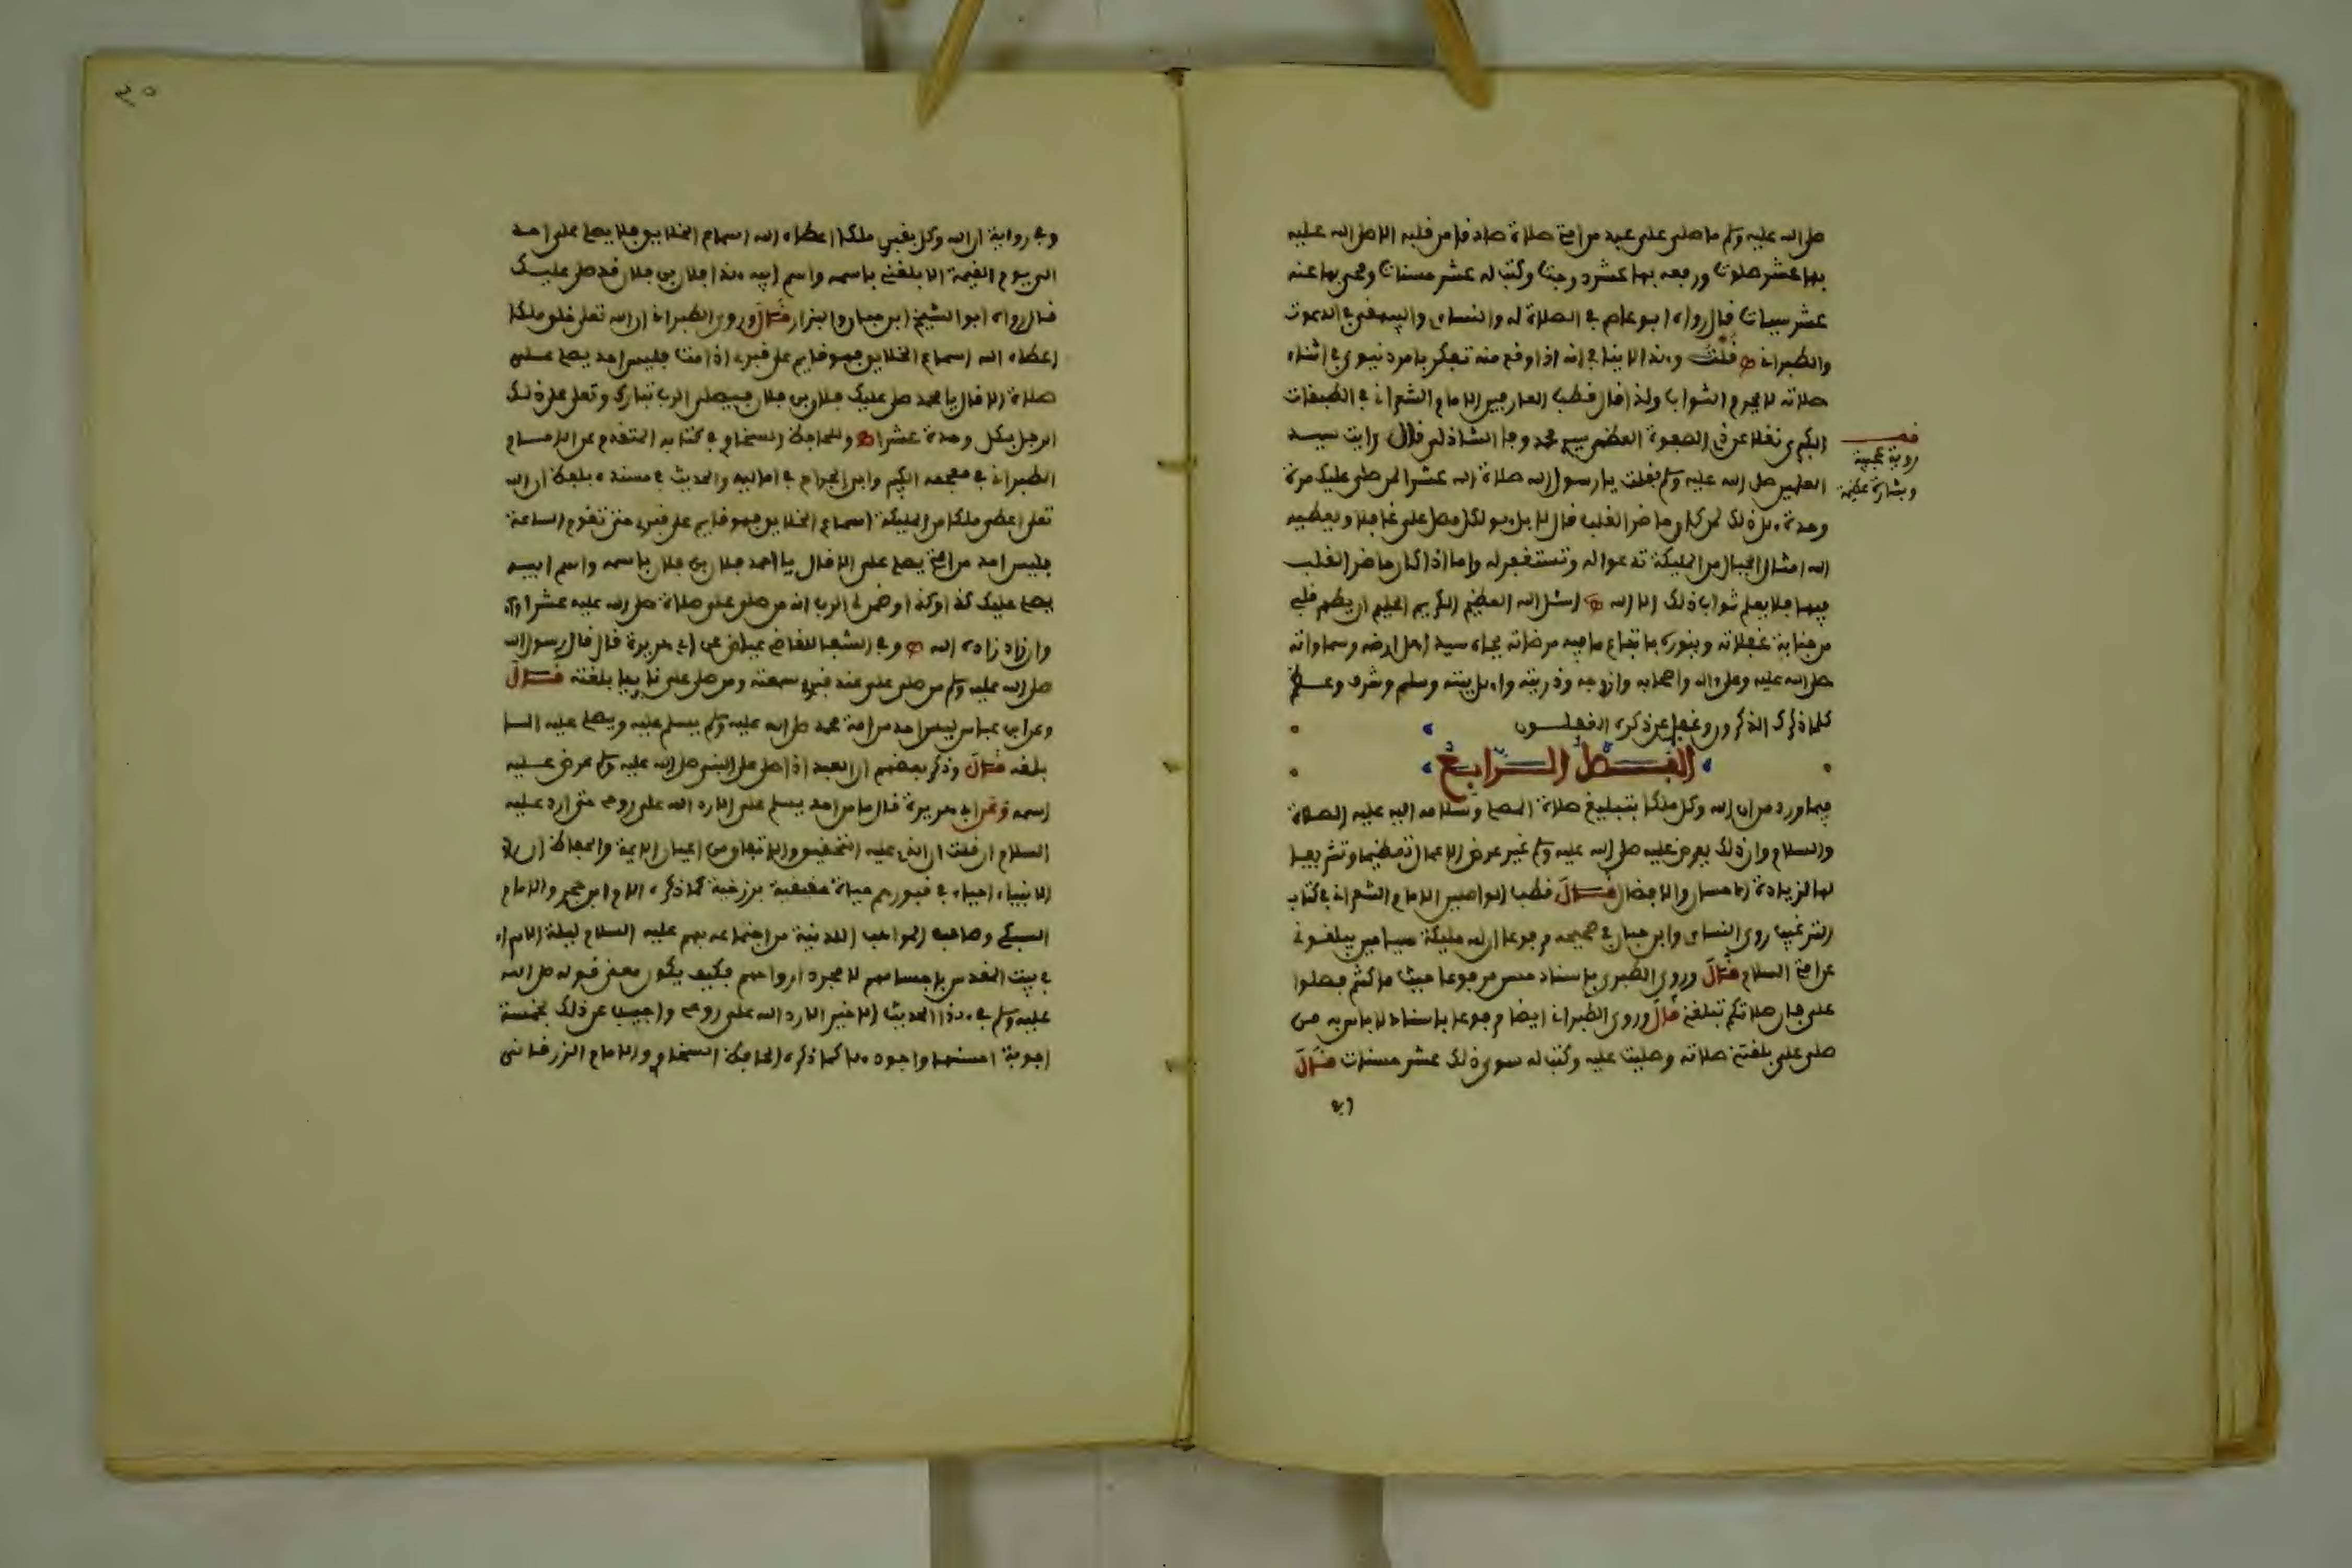 صلى الله عليه وسلم ما صلى علي عبد من امتي صلاة صادقا من قلبه الا صلى الله عليه
بها عشر صلوات ورفعه بها عشر درجات وكتب له عشر حسنات ومحى بها عنه
عشر سيئات قال رواه ابو عاصم في الصلاة له والنساي والبيهقي في الدعوات
والطبراني قلت وهذا لا ينافي انه اذا وقع منه تفكر بامر دنيوي في اثناء
صلاته لا يحرم الثواب ولذا قال قطب العارفين الامام الشعراني في الطبقات
الكبرى نقلا عن في الصفوة العظمى سيدي محمد وفا الشاذلي قال رايت سيد
قف
روية عجيبة
وبشارة عظيمة
العلمين صلى الله عليه وسلم فقلت يا رسول الله صلاة الله عشرا لمن صلى عليك مرة
وحدة هل ذلك لمن كان حاضر القلب قال لا بل هو لكل مصل علي غافلا ويعطيه
الله امثال الجبال من المليكة تدعوا له وتستغفر له واما اذا كان حاضر القلب
فيها فلا يعلم ثواب ذلك الا الله اسئل الله العظيم الكريم الحليم ان يطهر قلبي
من جنابة غفلاته وينوره باتباع ما فيه مرضاته بجاه سيد اهل ارضه وسماواته
صلى الله عليه وعلى ءاله واصحابه وازوجه وذريته واهل بيته وسلم وشرف وعظم
كلما ذكرك الذكرون وغفل عن ذكره الغفلون
الفصل الرابع
فيما ورد من ان الله وكل ملكا بتبليغ صلاة المصلي وسلامه اليه عليه الصلاة
والسلام وان ذلك يعرض عليه صلى الله عليه وسلم غير عرض الاعمال تعظيما وتشريفا
لها لزيادة الاحسان والافضال قال قطب الواصلين الامام الشعراني في كتاب
الترغيب روى النساي وابن حبان في صحيحه مرفوعا ان لله مليكة سياحين يبلغوني
عن امتي السلام قال وروى الطبري باسناد حسن مرفوعا حيث ما كنتم فصلوا
علي فان صلاتكم تبلغني قال وروى الطبراني ايضا مرفوعا باسناد لا باس به من
صلى علي بلغتني صلاته وصليت عليه وكتب له سوى ذلك عشر حسنات قال
وفي رواية ان الله وكل بقبري ملكا اعطاه الله اسماع الخلايق فلا يصلي علي احد
الى يوم القيمة الا بلغني باسمه واسم ابيه هذا فلان بن فلان قد صلى عليك
قال رواه ابو الشيخ ابن حبان والبزار قال وروى الطبراني ان الله تعلى خلق ملكا
اعطاه الله اسماع الخلايق فهو قايم على قبري اذا مت فليس احد يصلي علي
صلاة الا قال يا محمد صلى عليك فلان بن فلان فيصلي الرب تبارك وتعلى على ذلك
الرجل بكل وحدة عشرا وللحافظ السخاوي في كتابه المتقدم عن الامام
الطبراني في معجمه الكبير وابن الجراح في اماليه والحديث في مسنده بلفظ ان الله
تعلى اعطى ملكا من المليكة اسماع الخلايق فهو قايم على قبري حتى تقوم الساعة
فليس احد من امتي يصلي علي الا قال يا احمد فلان بن فلان باسمه واسم ابيه
يصلي عليك كذا وكذا وضمن لي الرب انه من صلى علي صلاة صلى الله عليه عشرا
وان زاد زاده الله وفي الشفا للقاضي عياض عن ابي هريرة قال قال رسول الله
صلى الله عليه وسلم من صلى علي عند قبري سمعته ومن صلى علي نايا بلغته قال
وعن ابن عباس ليس احد من امة محمد صلى الله عليه وسلم يسلم عليه ويصلي عليه الا
بلغه قال وذكر بعضهم ان العبد اذا صلى على النبي صلى الله عليه وسلم عرض عليه
اسمه وعن ابي هريرة قال ما من احد يسلم علي الا رد الله علي روحي حتى ارد عليه
السلام ان قلت ان الذي عليه التحقيق والاتفاق من اعيان الايمة والحفاظ ان
الانبياء احياء في قبورهم حياة حقيقية برزخية كما ذكره الامام ابن حجر والامام
السبكي وصاحب المواهب اللدنية من اجتماعه بهم عليه السلام ليلة الاسراء
في بيت المقدس باجسامهم لا مجرد ارواحهم فكيف يكون معنى قوله صلى الله
عليه وسلم في هذا الحديث الاخير الا رد الله علي روحي واجيب عن ذلك بخمسة
اجوبة احسنها واجودها كما ذكره الحافظ السخاوي والامام الزرقاني